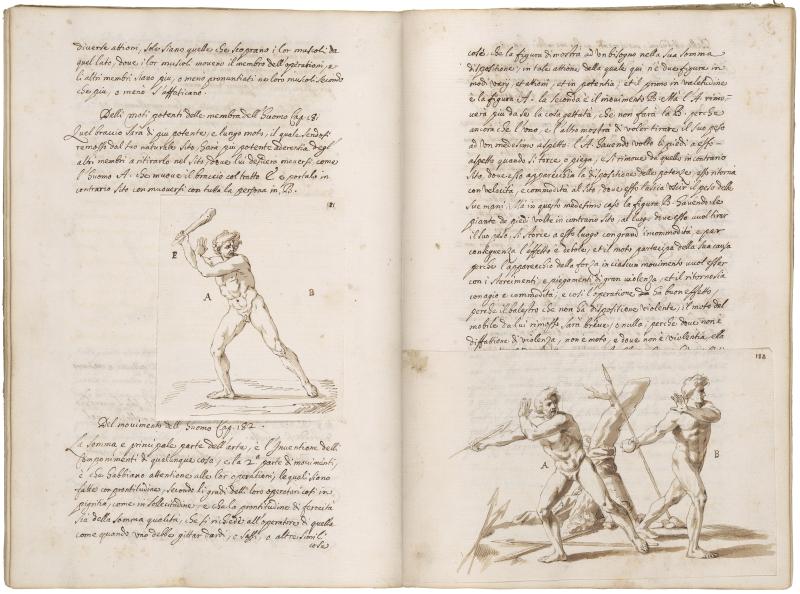 diverse attioni, sole siano quelle che scoprano i lor musoli da
quel lato, dove i lor musoli moveno il membro dell'operationi, e
li altri membri siano piu, o meno pronuntiati ne lor musoli secondo
che piu, o meno s'affaticano.
Delli moti potenti delle membra dell'huomo Cap. 181.
Quel braccio sarà di piu potente, e lungo moto, il quale sendosi
remosso dal suo naturale sito, harà piu potente aderentia degl'
altri membri a ritirarlo nel sito, dove lui desidera moversi, come
l'huomo A. che muove il braccio col tratto E. e portalo in
contrario sito con muoversi con tutta la persona in B.
181
E
A
B
Del movimento dell'huomo Cap. 182.
La somma e principale parte dell'arte, è l'inventione delli
componimenti di qualunque cosa, e la 2ª parte di movimenti,
è che habbiano attentione alle lor operationi, le quali siano
fatte con prontitudine, secondo li gradi delli loro operatori così in
pigritia, come in sollecitudine, e che la prontitudine di ferocità
sia della somma qualità, che si richiede all'operatore di quella
come quando uno debbe gittar dardi, e sassi, o altre simili
cose
cose. che la figura dimostra ad un bisogno nella sua somma
dispositione, in tale attione, della quale qui n'è due figure in
modi varij, et attioni, et in potentia, et il primo in valetudine
è la figura A. la seconda è il movimento B. Ma l'A rimo-
verà piu da se la cosa gettata, che non farà la B. perche
ancora che l'uno, e l'altro mostra di voler tirare il suo peso
ad un medesimo aspetto. l'A havendo volto li piedi a esso
aspetto quando si torce, o piega, e si rimove da quello in contrario
sito, dove esso apparecchia la dispositione della potenza, esso ritorna
con velocità, e commodità al sito, dove esso lascia uscir il peso delle
sue mani. Ma in questo medesimo caso la figura B. havendo le
piante de piedi volte in contrario sito, al luogo dove esso vuol tirar
il suo peso, si storce a esso luogo con grand'incommodità, e per
conseguenza l'effetto è debole, et il moto partecipa della sua causa
perche l'apparecchio della forza in ciascun movimento vuol esser
con istorcimenti, e piegamenti di gran violenza, et il ritorno sia
con agio e commodità, e così l'operatione ha buon effetto,
perche il balestro che non ha dispositione violente, il moto del
mobile da lui rimosso sarà breve, o nullo; perche dove non è
disfattione di violenza, non è moto, e dove non è violentia, ella
182
A
B